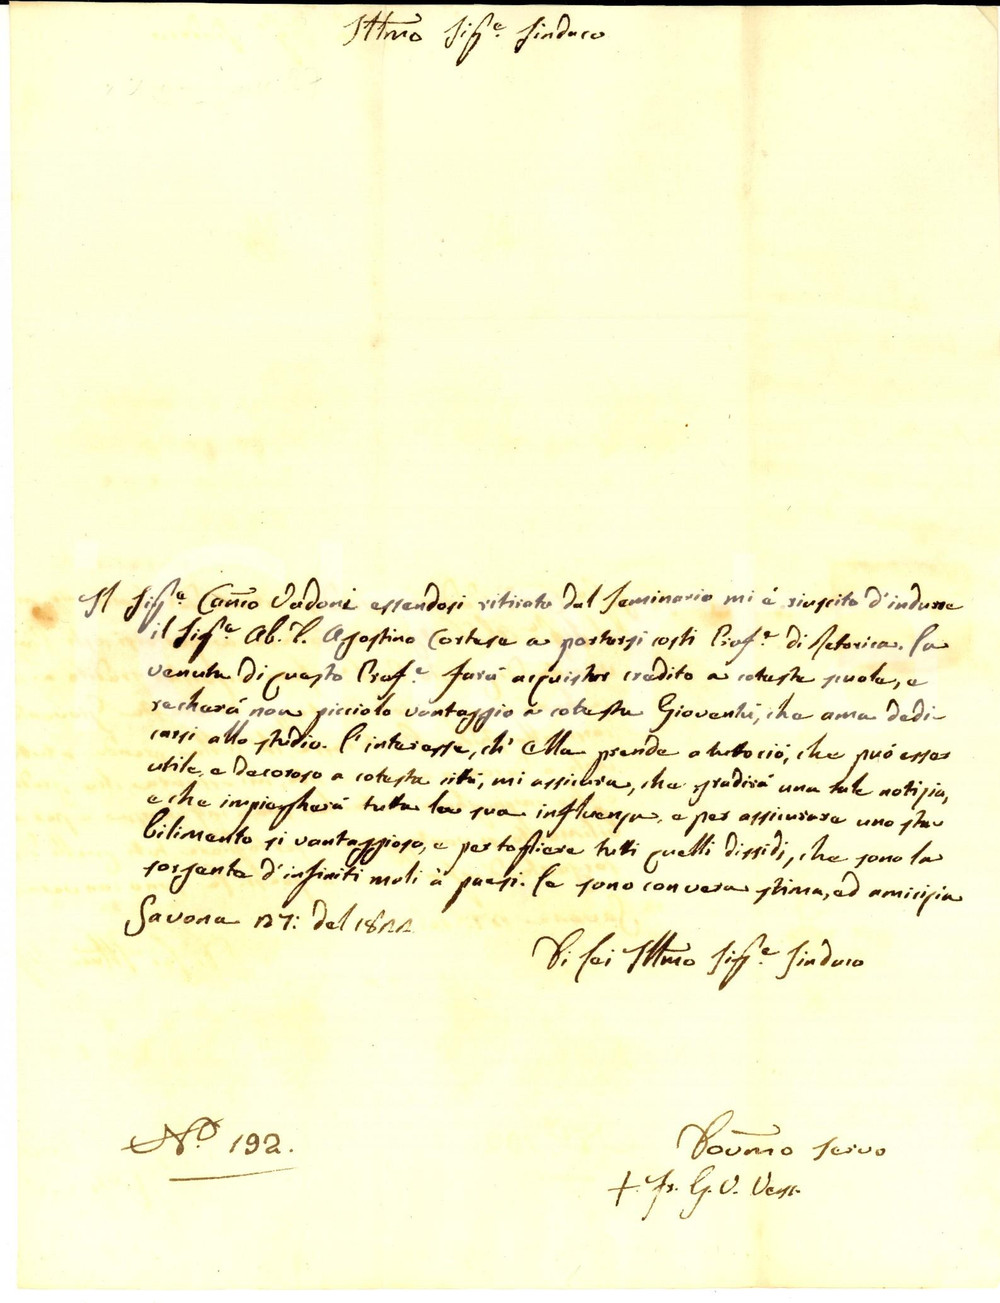 Ill.mo Sig.e Sindaco
Il Sig.e Can.co Vadoni essendosi ritirato dal Seminario mi è riuscito d'indurre
il Sig.e Ab. P. Agostino Cortese a portarsi costì Prof.e di Retorica. La
venuta di questo Prof.e farà acquistar credito a coteste scuole, e
recherà non picciolo vantaggio a cotesta Gioventù, che ama dedi-
carsi allo studio. L'interesse, ch'Ella prende a tuttociò, che può esser
utile, e decoroso a cotesta città, mi assicura, che gradirà una tale notizia,
e che impiegherà tutta la sua influenza, e per assicurare uno sta-
bilimento sì vantaggioso, e per togliere tutti quelli dissidj, che sono la
sorgente d'infiniti mali à paesi. Le sono con vera stima, ed amicizia
Savona 27: del 1822
Di Lei Ill.mo Sig.e Sindaco
N.o 192.
Dov.mo Servo
+ Fr. G. V. Vesc.